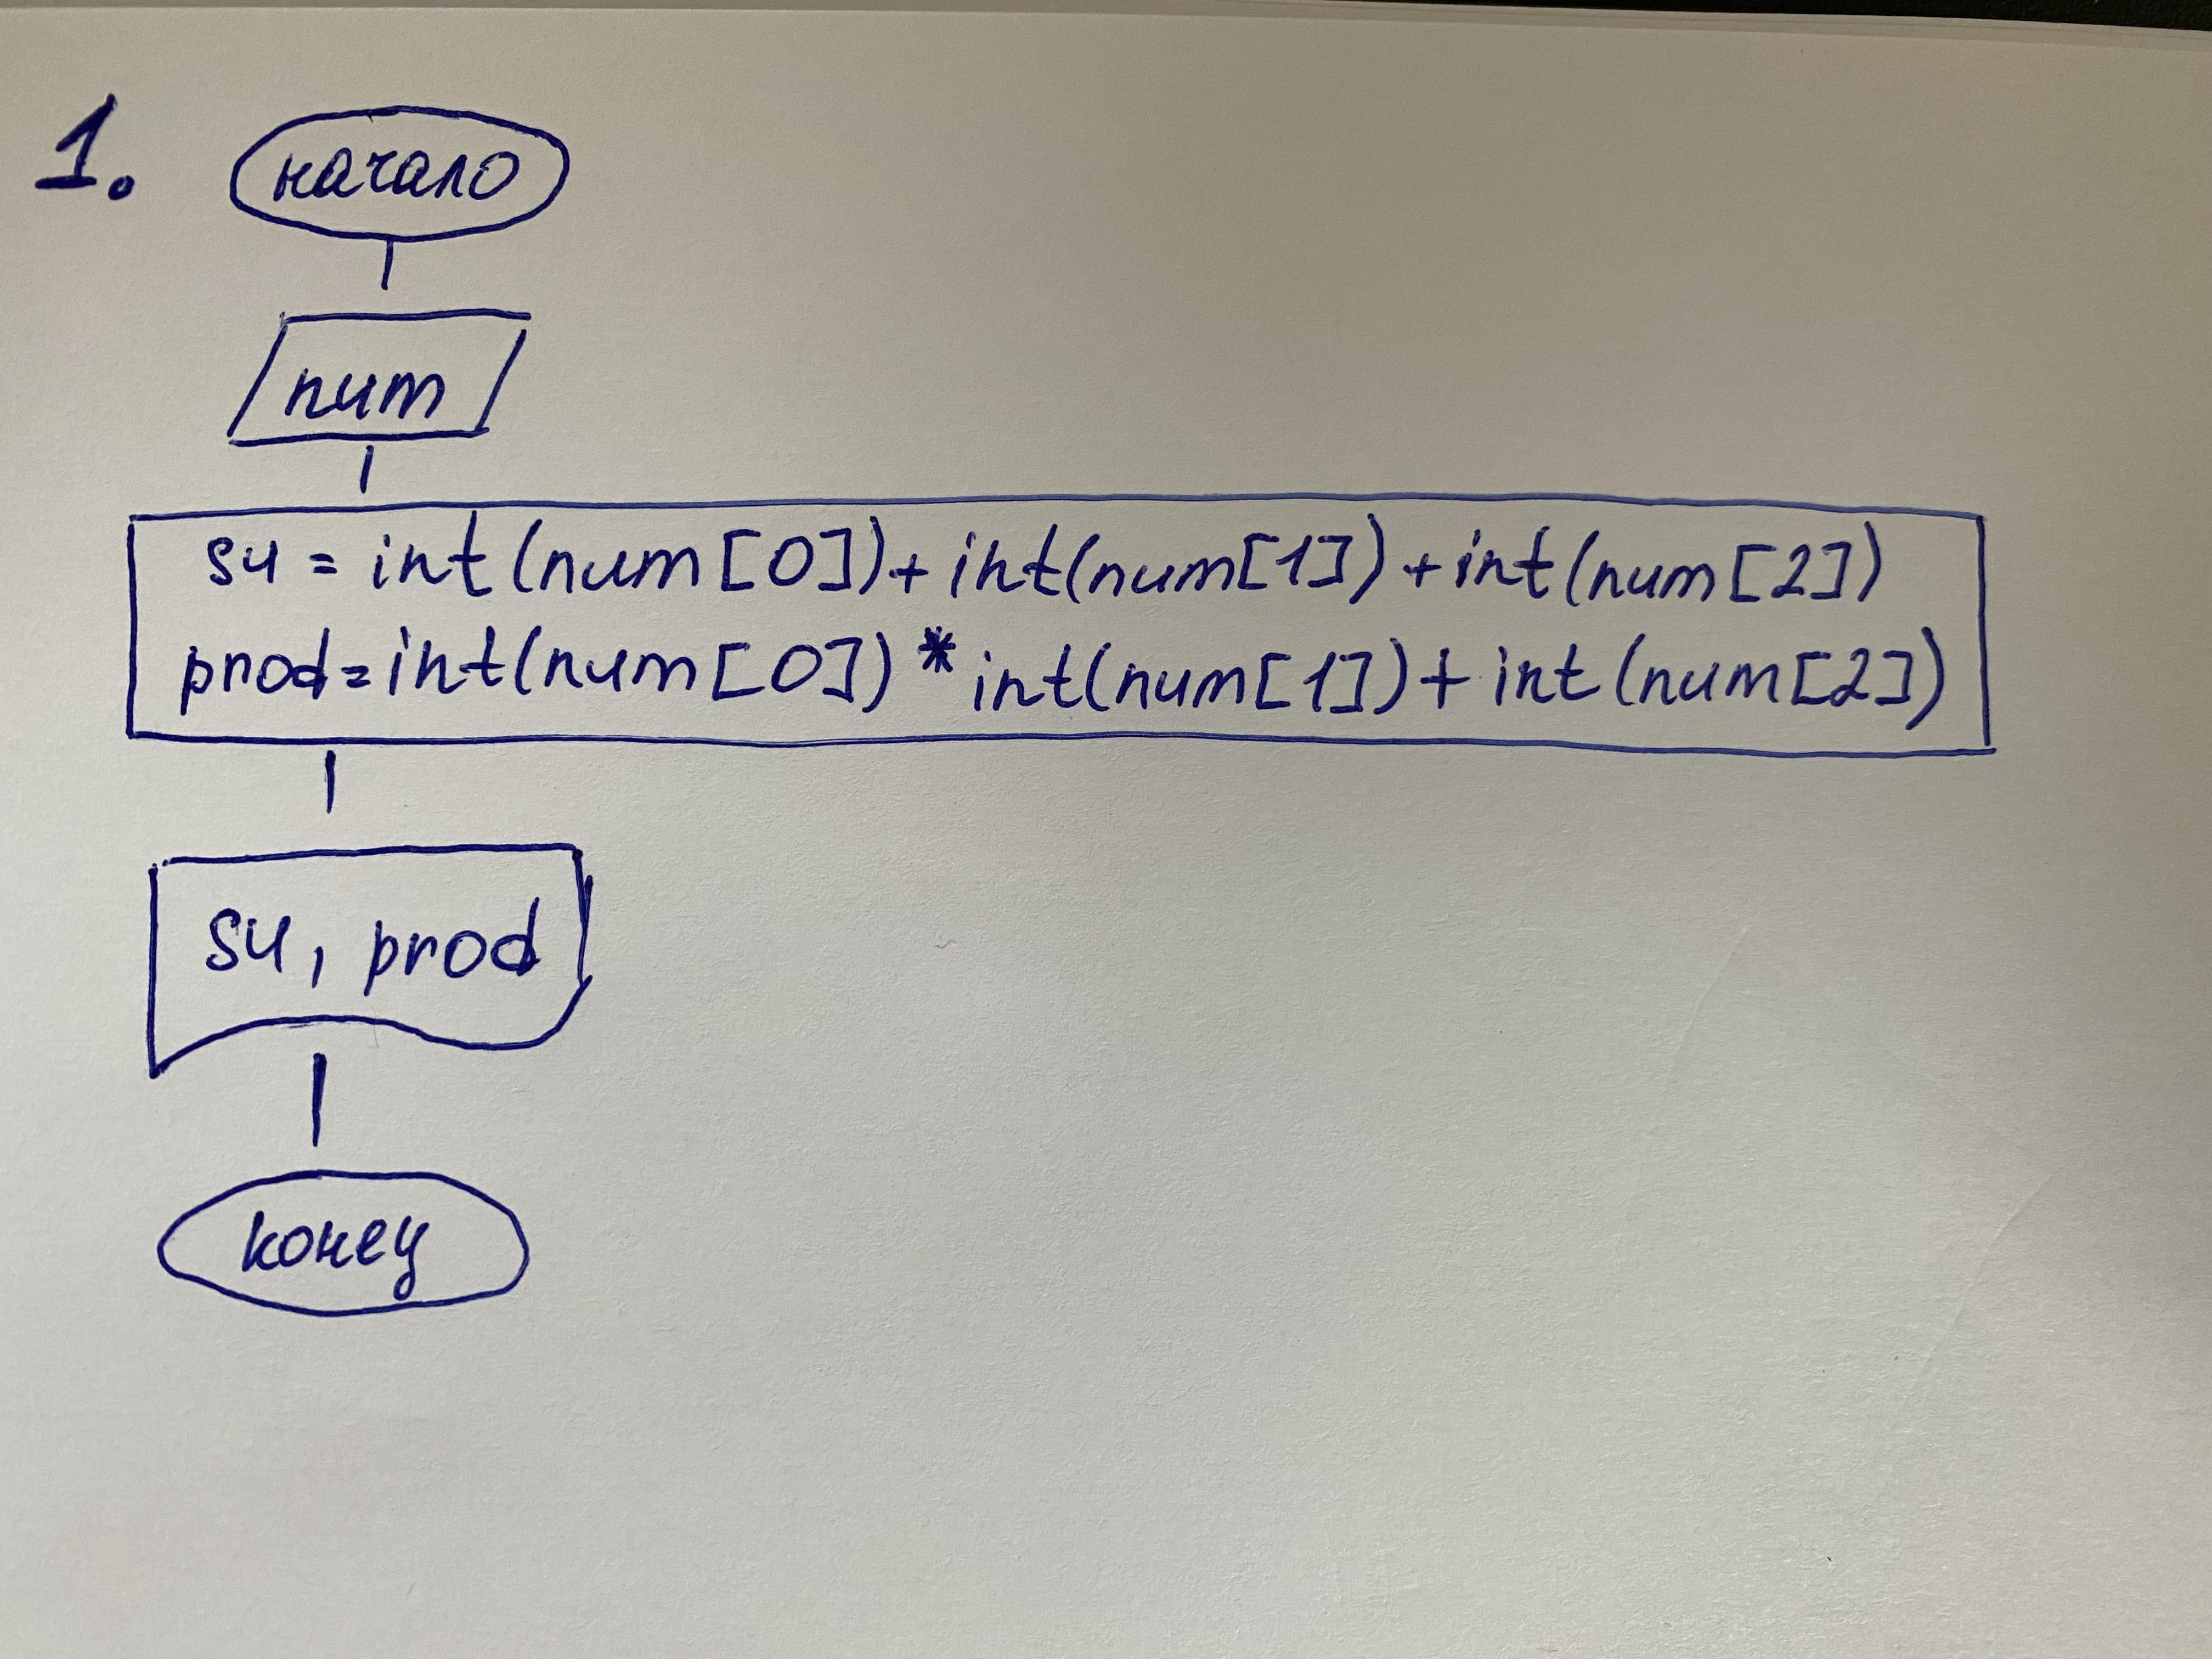 1. начало
num
su = int(num[0])+int(num[1])+int(num[2])
prod=int(num[0])*int(num[1])+int(num[2])
su, prod
конец